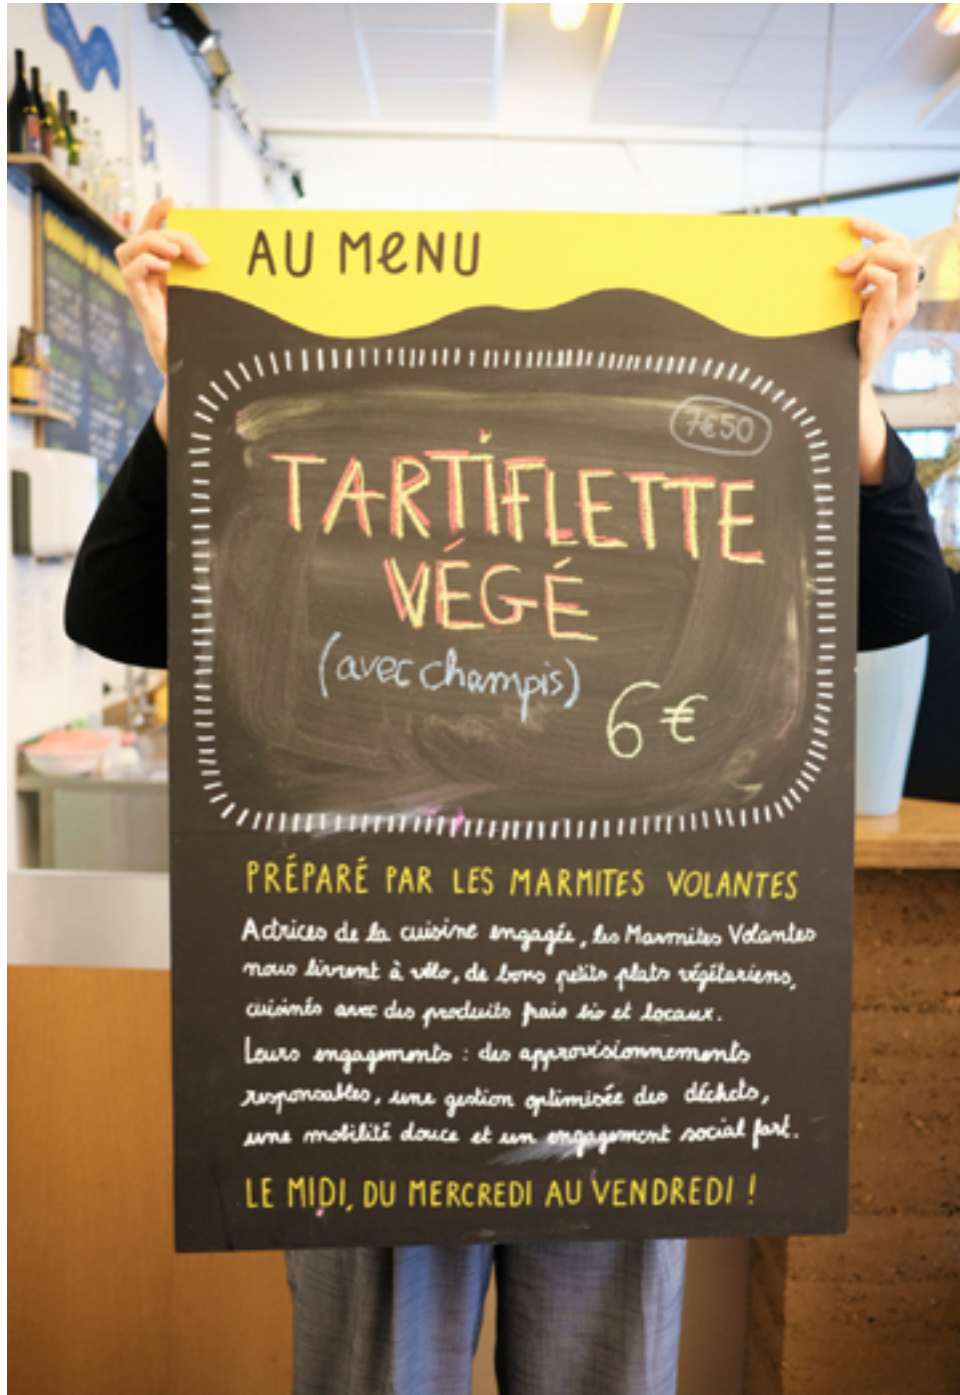 AU MeNU
7€50
TARTIFLETTE
VÉGÉ
(avec champis)
6€
PRÉPARÉ PAR LES MARMITES VOLANTES
Actrices de la cuisine engagée, les Marmites Volantes
nous livrent à vélo, de bons petits plats végétariens,
cuisinés avec des produits frais bio et locaux.
Leurs engagements : des approvisionnements
responsables, une gestion optimisée des déchets,
une mobilité douce et un engagement social fort.
LE MIDI, DU MERCREDI AU VENDREDI !